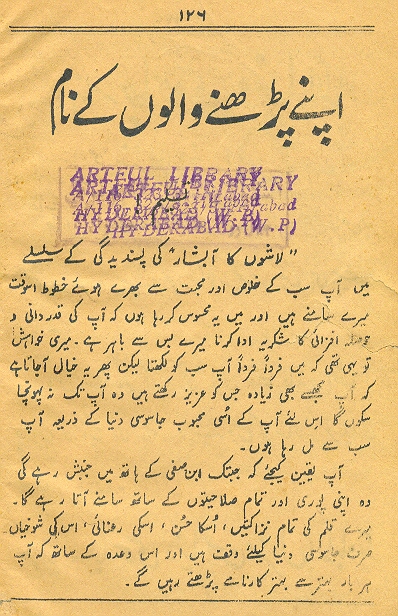 ۱۲٦
اپنے پڑھنے والوں کے نام
ARTFUL LIBRARY
HYDERABAD (W.P)
تسلیم !
"لاشوں کا آبشار" کی پسندیدگی کے سلسلے
میں آپ سب کے خلوص اور محبت سے بھرے ہوئے خطوط اسوقت
میرے سامنے ہیں اور میں یہ محسوس کر رہا ہوں کہ آپ کی قدردانی و
حوصلہ افزائی کا شکریہ ادا کرنا میرے بس سے باہر ہے۔ میری خواہش
تو یہی تھی کہ میں فرداً فرداً آپ سب کو لکھتا لیکن پھر یہ خیال آجاتا ہے
کہ آپ مجھسے بھی زیادہ جس کو عزیز رکھتے ہیں وہ آپ تک نہ پہونچا
سکوں گا اس لئے آپ کے اُسی محبوب جاسوسی دنیا کے ذریعہ آپ
سب سے مل رہا ہوں۔
آپ یقین کیجئے کہ جبتک ابن صفی کے ہاتھ میں جنبش رہے گی
وہ اپنی پوری اور تمام صلاحیتوں کے ساتھ سامنے آتا رہے گا۔
میرے قلم کی تمام نزاکتیں، اُسکا حسن، اسکی رعنائی، اس کی شوخیاں
صرف جاسوسی دنیا کیلئے وقف ہیں اور اس وعدہ کے ساتھ کہ آپ
ہر بار بہتر سے بہتر کارنامے پڑھتے رہیں گے۔